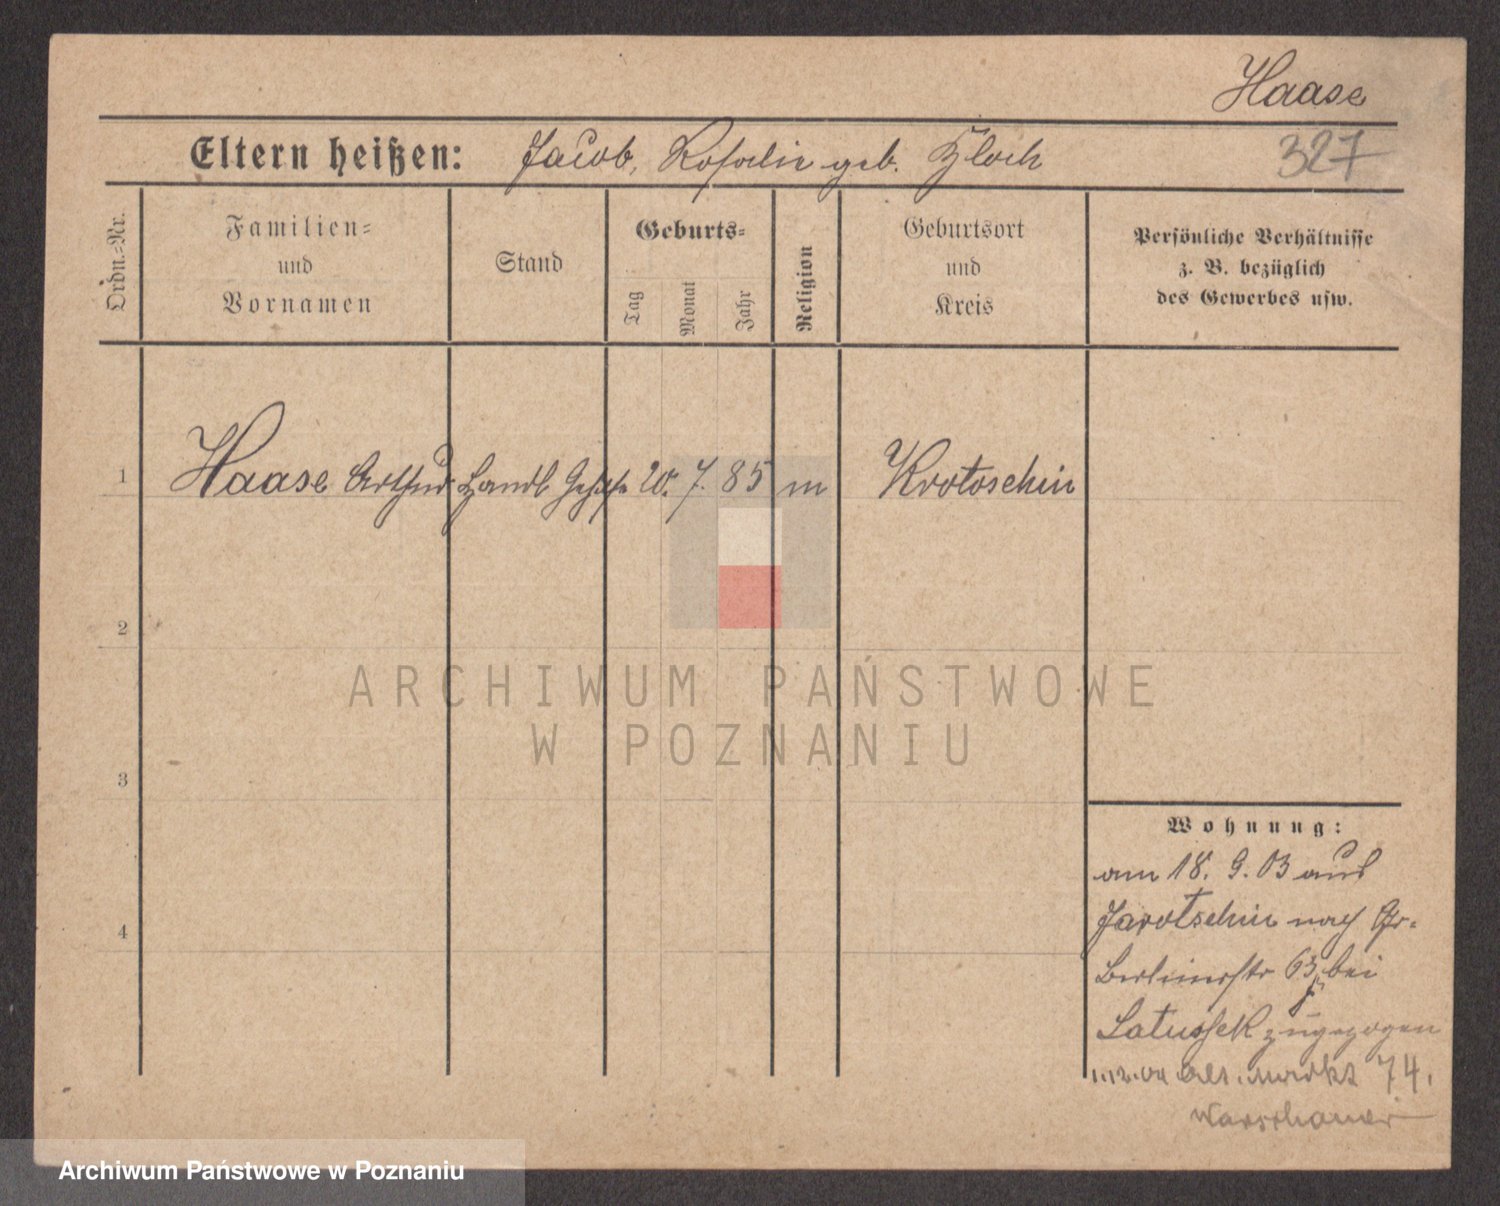 Haase
Eltern heißen: Jacob, Rosalie geb. Zloch
327
Ordn.-Nr.
Familien-
und
Vornamen
Stand
Geburts-
Tag
Monat
Jahr
Religion
Geburtsort
und
Kreis
Persönliche Verhältnisse
z. B. bezüglich
des Gewerbes usw.
1 Haase Arthur Handl. Gehilfe 20. 7. 85 m Krotoschin
2
ARCHIWUM PAŃSTWOWE
W POZNANIU
3
4
Wohnung:
am 18. 9. 03 aus
Jarotschin nach Gr.
Berlinerstr 63 bei
Latussek zugezogen
1.12.04 Alt. Markt 74.
Warschauer
Archiwum Państwowe w Poznaniu